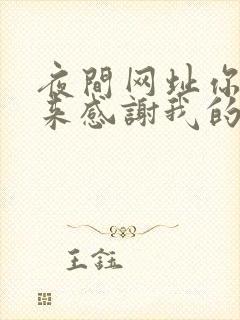 夜間网址你
来感謝我的
王鈺